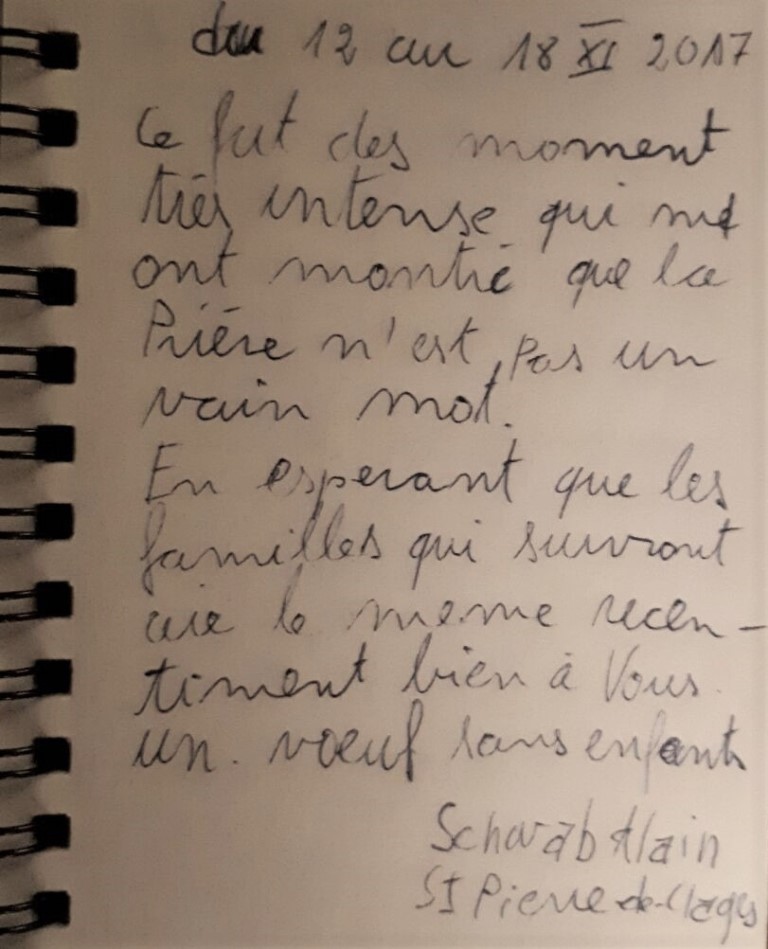 du 12 au 18 XI 2017
Ce fut des moment
très intense qui me
ont montré que la
Prière n'est pas un
vain mot.
En esperant que les
familles qui suivront
aie le meme recen-
timent bien à Vous.
un. voeuf sans enfants
Schwab Alain
St Pierre-de-Clages